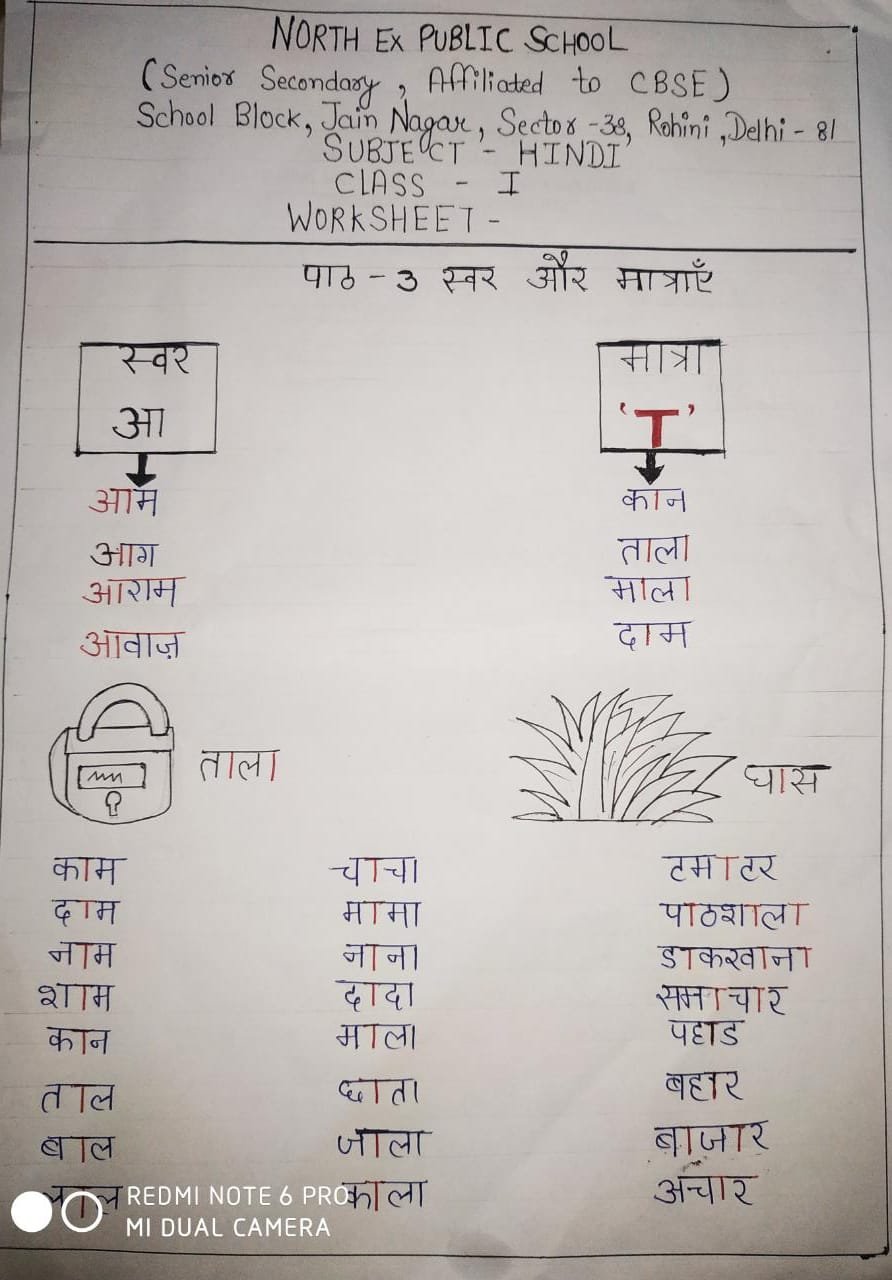 NORTH EX PUBLIC SCHOOL
(Senior Secondary, Affiliated to CBSE)
School Block, Jain Nagar, Sector-38, Rohini, Delhi-81
SUBJECT - HINDI
CLASS - I
WORKSHEET -
पाठ - 3 स्वर और मात्राएँ
स्वर मात्रा
आ 'ा'
आम कान
आग ताला
आराम माला
आवाज़ दाम
ताला घास
काम चाचा टमाटर
दाम मामा पाठशाला
नाम नाना डाकखाना
शाम दादा समाचार
कान माला पहाड
ताल छाता बहार
बाल जाला बाजार
लाल काला अचार
REDMI NOTE 6 PRO
MI DUAL CAMERA